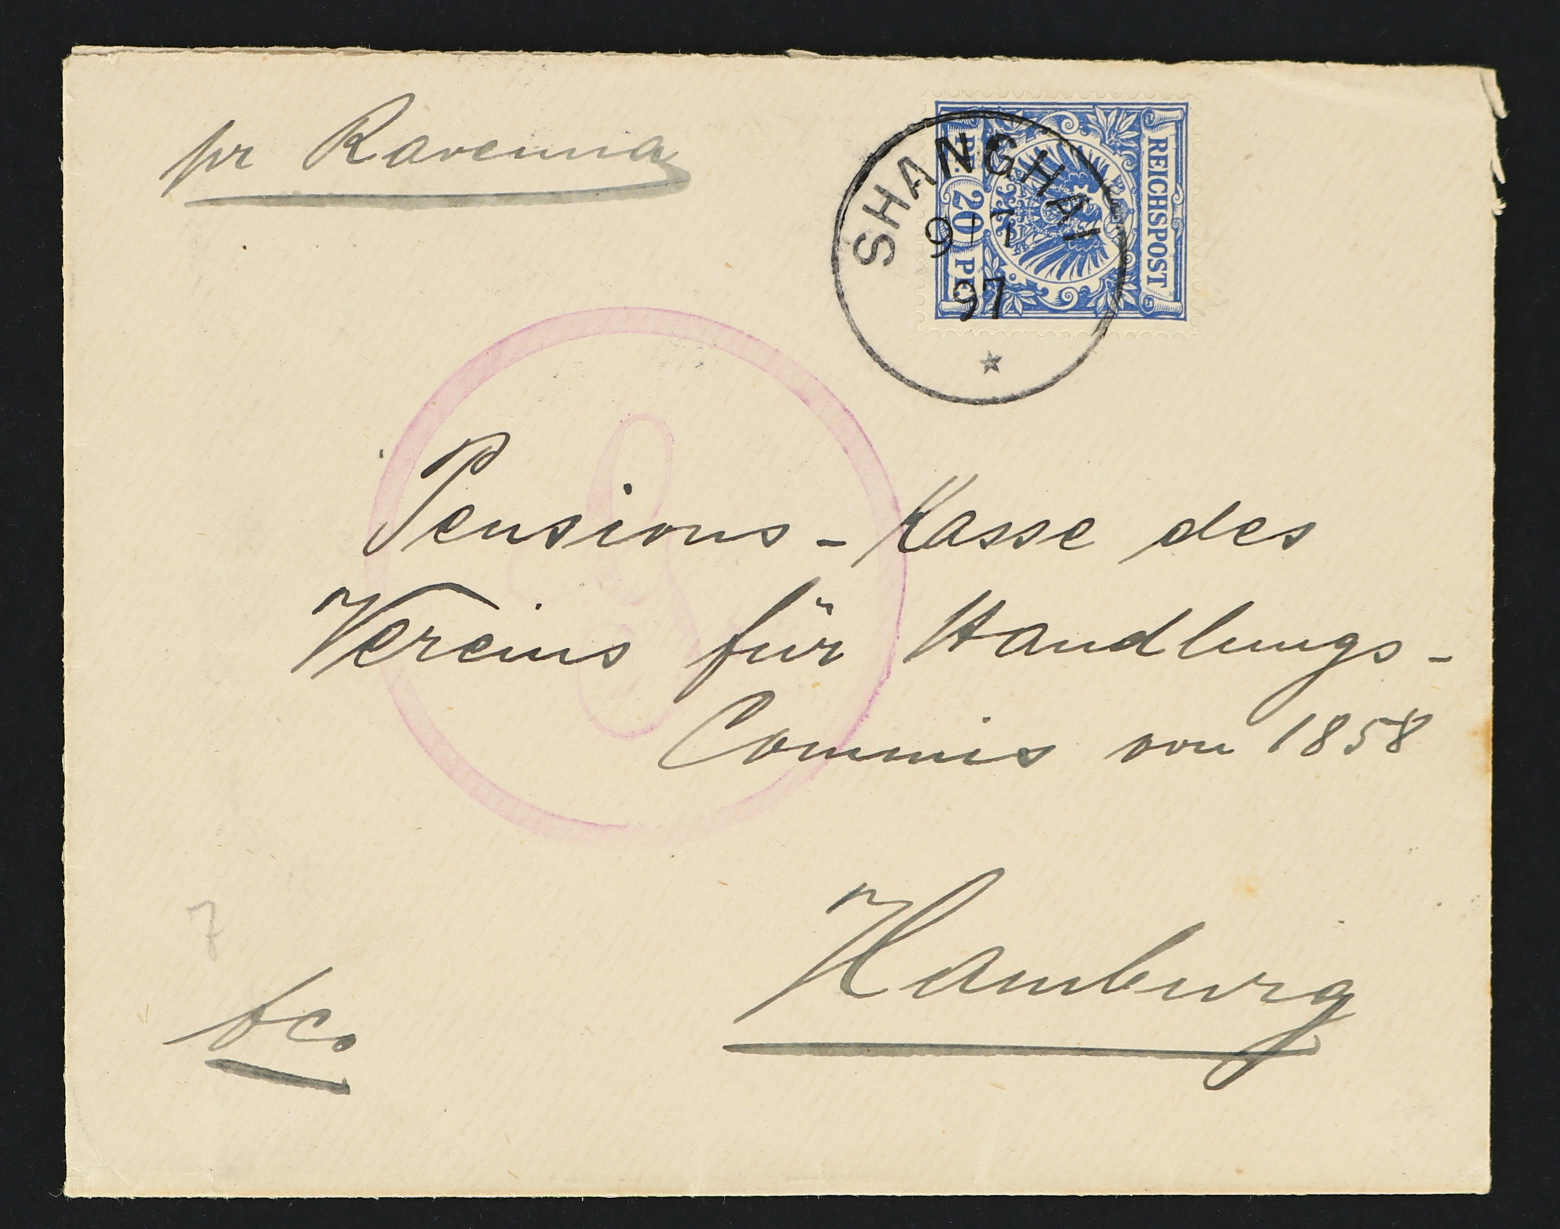 pr Ravenna
REICHSPOST
20 PF.
SHANGHAI
9/7
97
Pensions-Kasse des
Vereins für Handlungs-
Commis von 1858
Hamburg
7
fco.